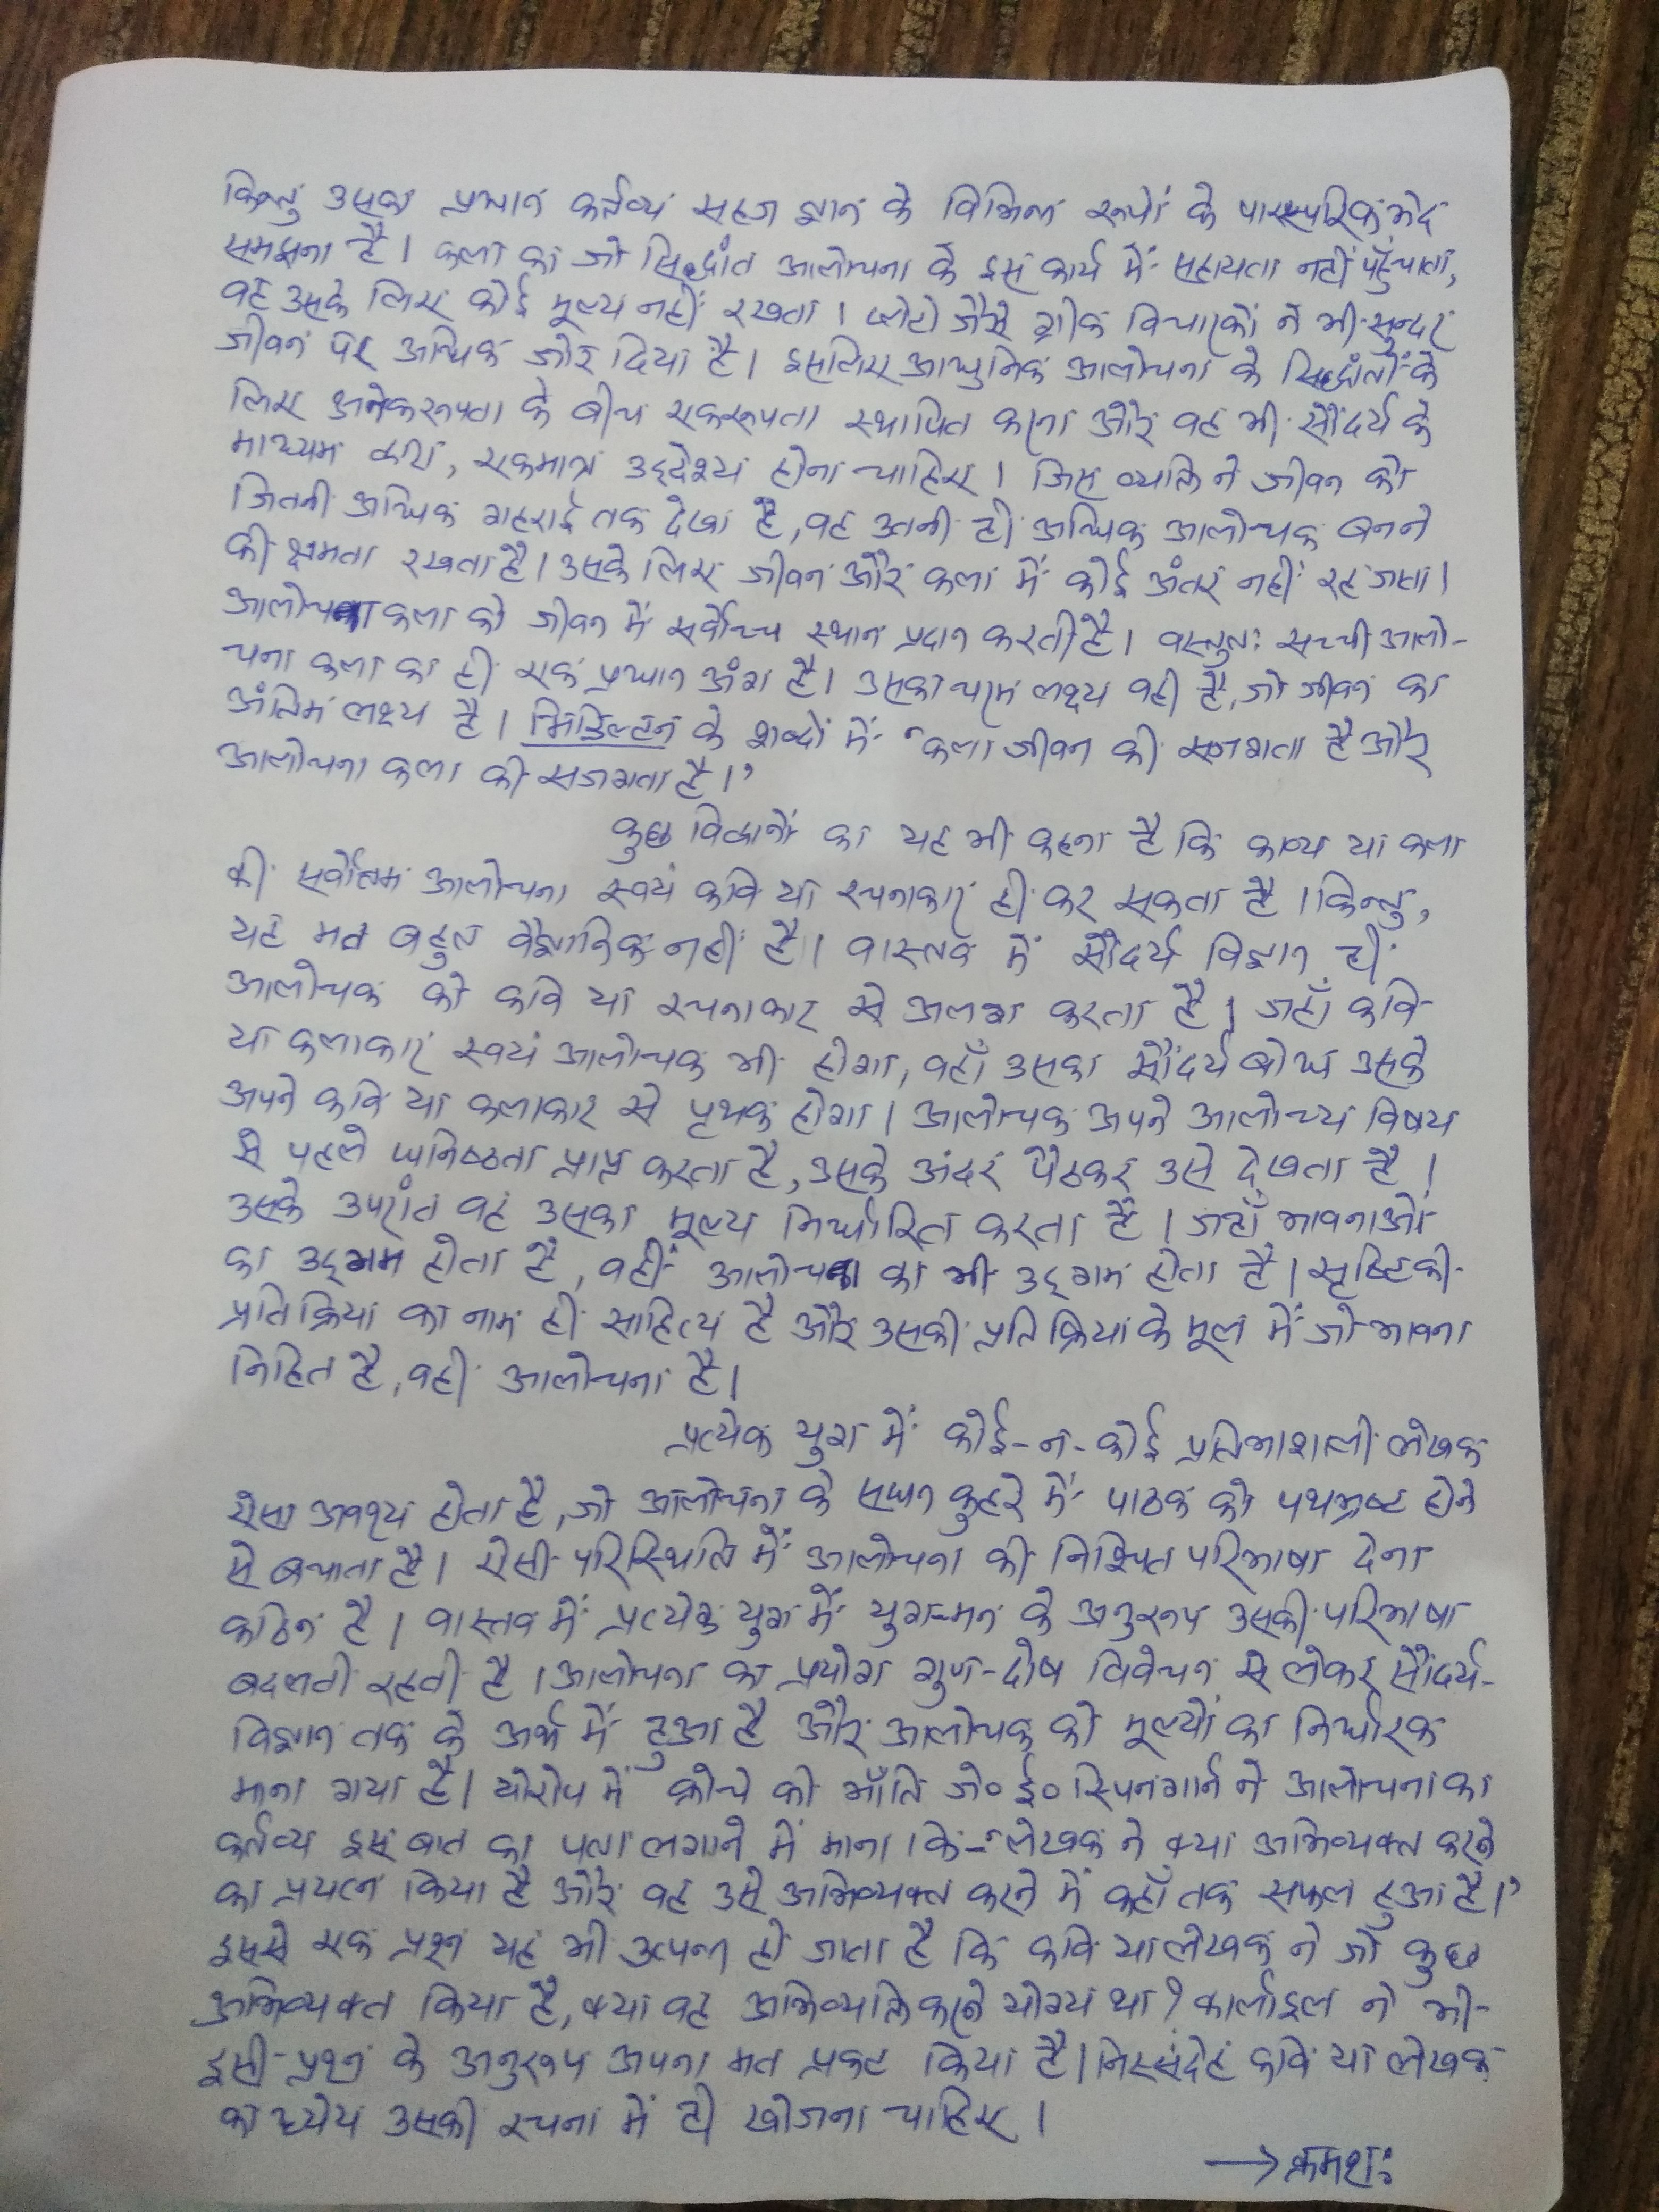 किन्तु उसका प्रधान कर्तव्य सहज ज्ञान के विभिन्न रूपों के पारस्परिक भेद
समझना है। कला का जो सिद्धांत आलोचना के इस कार्य में सहायता नहीं पहुँचाता,
वह उसके लिए कोई मूल्य नहीं रखता। प्लेटो जैसे ग्रीक विचारकों ने भी सुन्दर
जीवन पर अधिक जोर दिया है। इसलिए आधुनिक आलोचना के सिद्धांतों के
लिए अनेकरूपता के बीच एकरूपता स्थापित करना और वह भी सौंदर्य के
माध्यम द्वारा, एकमात्र उद्देश्य होना चाहिए। जिस व्यक्ति ने जीवन को
जितनी अधिक गहराई तक देखा है, वह उतनी ही अधिक आलोचक बनने
की क्षमता रखता है। उसके लिए जीवन और कला में कोई अंतर नहीं रह जाता।
आलोचना कला को जीवन में सर्वोच्च स्थान प्रदान करती है। वस्तुतः सच्ची आलो-
चना कला का ही एक प्रधान अंग है। उसका चरम लक्ष्य वही है, जो जीवन का
अंतिम लक्ष्य है। मिडिल्टन के शब्दों में- 'कला जीवन की सजगता है और
आलोचना कला की सजगता है।'
कुछ विद्वानों का यह भी कहना है कि काव्य या कला
की सर्वोत्तम आलोचना स्वयं कवि या रचनाकार ही कर सकता है। किन्तु,
यह मत बहुत वैज्ञानिक नहीं है। वास्तव में सौंदर्य विज्ञान ही
आलोचक को कवि या रचनाकार से अलग करता है। जहाँ कवि
या कलाकार स्वयं आलोचक भी होगा, वहाँ उसका सौंदर्य बोध उसके
अपने कवि या कलाकार से पृथक होगा। आलोचक अपने आलोच्य विषय
से पहले घनिष्ठता प्राप्त करता है, उसके अंदर पैठकर उसे देखता है।
उसके उपरांत वह उसका मूल्य निर्धारित करता है। जहाँ भावनाओं
का उद्गम होता है, वहीं आलोचना का भी उद्गम होता है। सृष्टि की
प्रतिक्रिया का नाम ही साहित्य है और उसकी प्रतिक्रिया के मूल में जो भावना
निहित है, वही आलोचना है।
प्रत्येक युग में कोई-न-कोई प्रतिभाशाली लेखक
ऐसा अवश्य होता है, जो आलोचना के सघन कुहरे में पाठक को पथभ्रष्ट होने
से बचाता है। ऐसी परिस्थिति में आलोचना की निश्चित परिभाषा देना
कठिन है। वास्तव में प्रत्येक युग में युग-मन के अनुरूप उसकी परिभाषा
बदलती रहती है। आलोचना का प्रयोग गुण-दोष विवेचन से लेकर सौंदर्य-
विज्ञान तक के अर्थ में हुआ है और आलोचक को मूल्यों का निर्धारक
माना गया है। योरोप में क्रोचे की भाँति जे० ई० स्पिनगार्न ने आलोचना का
कर्तव्य इस बात का पता लगाने में माना कि- 'लेखक ने क्या अभिव्यक्त करने
का प्रयत्न किया है और वह उसे अभिव्यक्त करने में कहाँ तक सफल हुआ है।'
इससे एक प्रश्न यह भी उत्पन्न हो जाता है कि कवि या लेखक ने जो कुछ
अभिव्यक्त किया है, क्या वह अभिव्यक्ति करने योग्य था? कार्लाइल ने भी
इसी प्रश्न के अनुरूप अपना मत प्रकट किया है। निस्संदेह कवि या लेखक
का ध्येय उसकी रचना में ही खोजना चाहिए।
→ क्रमशः